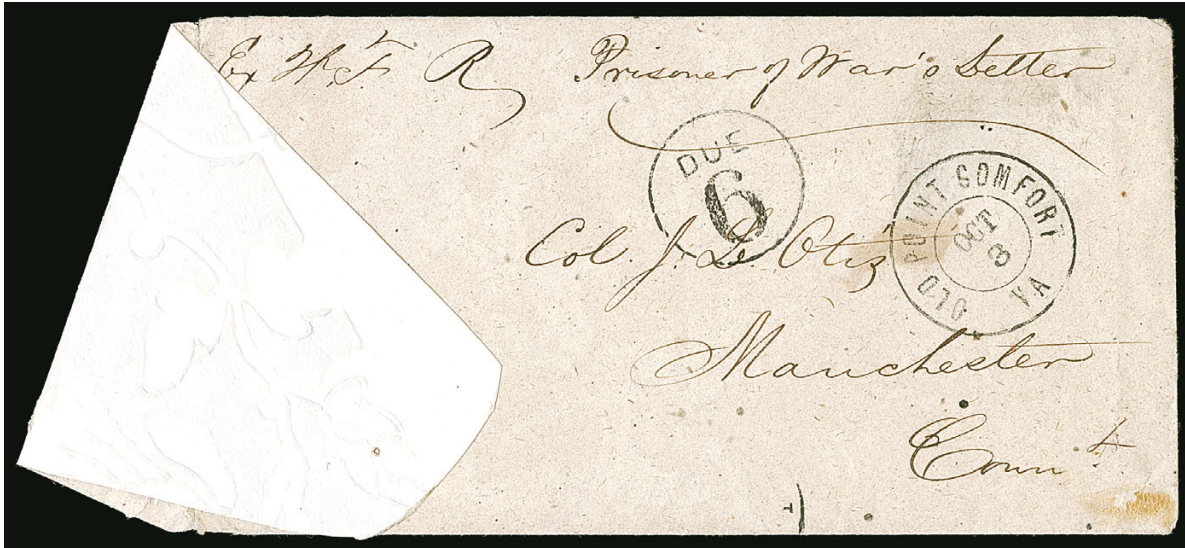 Ex Fl. of T. R Prisoner of War's Letter
DUE
6
OLD POINT COMFORT
OCT
3
VA
Col. J. L. Otis
Manchester
Conn t